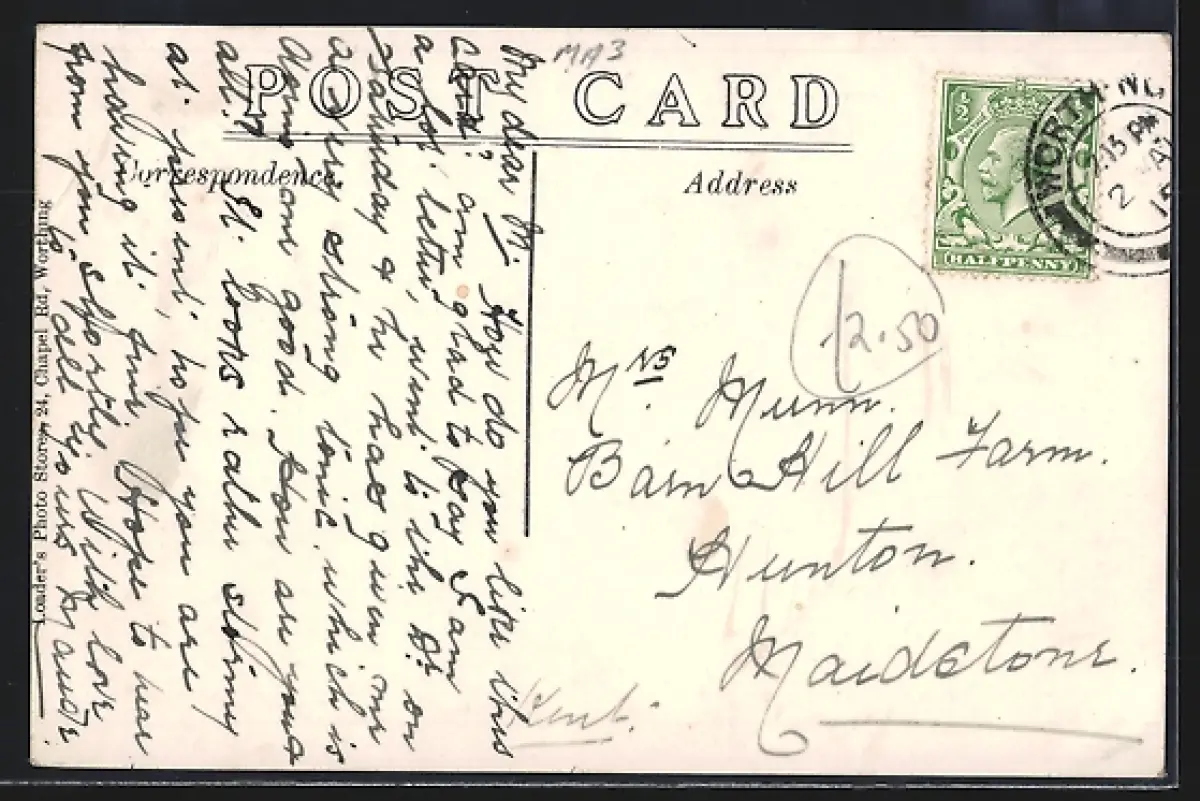 MA3
POST CARD
Correspondence
Address
½
HALFPENNY
WORTHING
2.15 PM
2
15
12.50
Mrs. Munn.
Barn Hill Farm.
Hunton.
Maidstone.
Kent.
My dear M. How do you like this
Card? am glad to say I am
a lot better, went to the Dr. on
Saturday & he has given me
a very strong tonic which is
doing me good. How are you
all? It looks rather stormy
at present, hope you are
having it fine. Hope to hear
from you shortly. With love
to all yours
Loader's Photo Stores, 24, Chapel Rd, Worthing